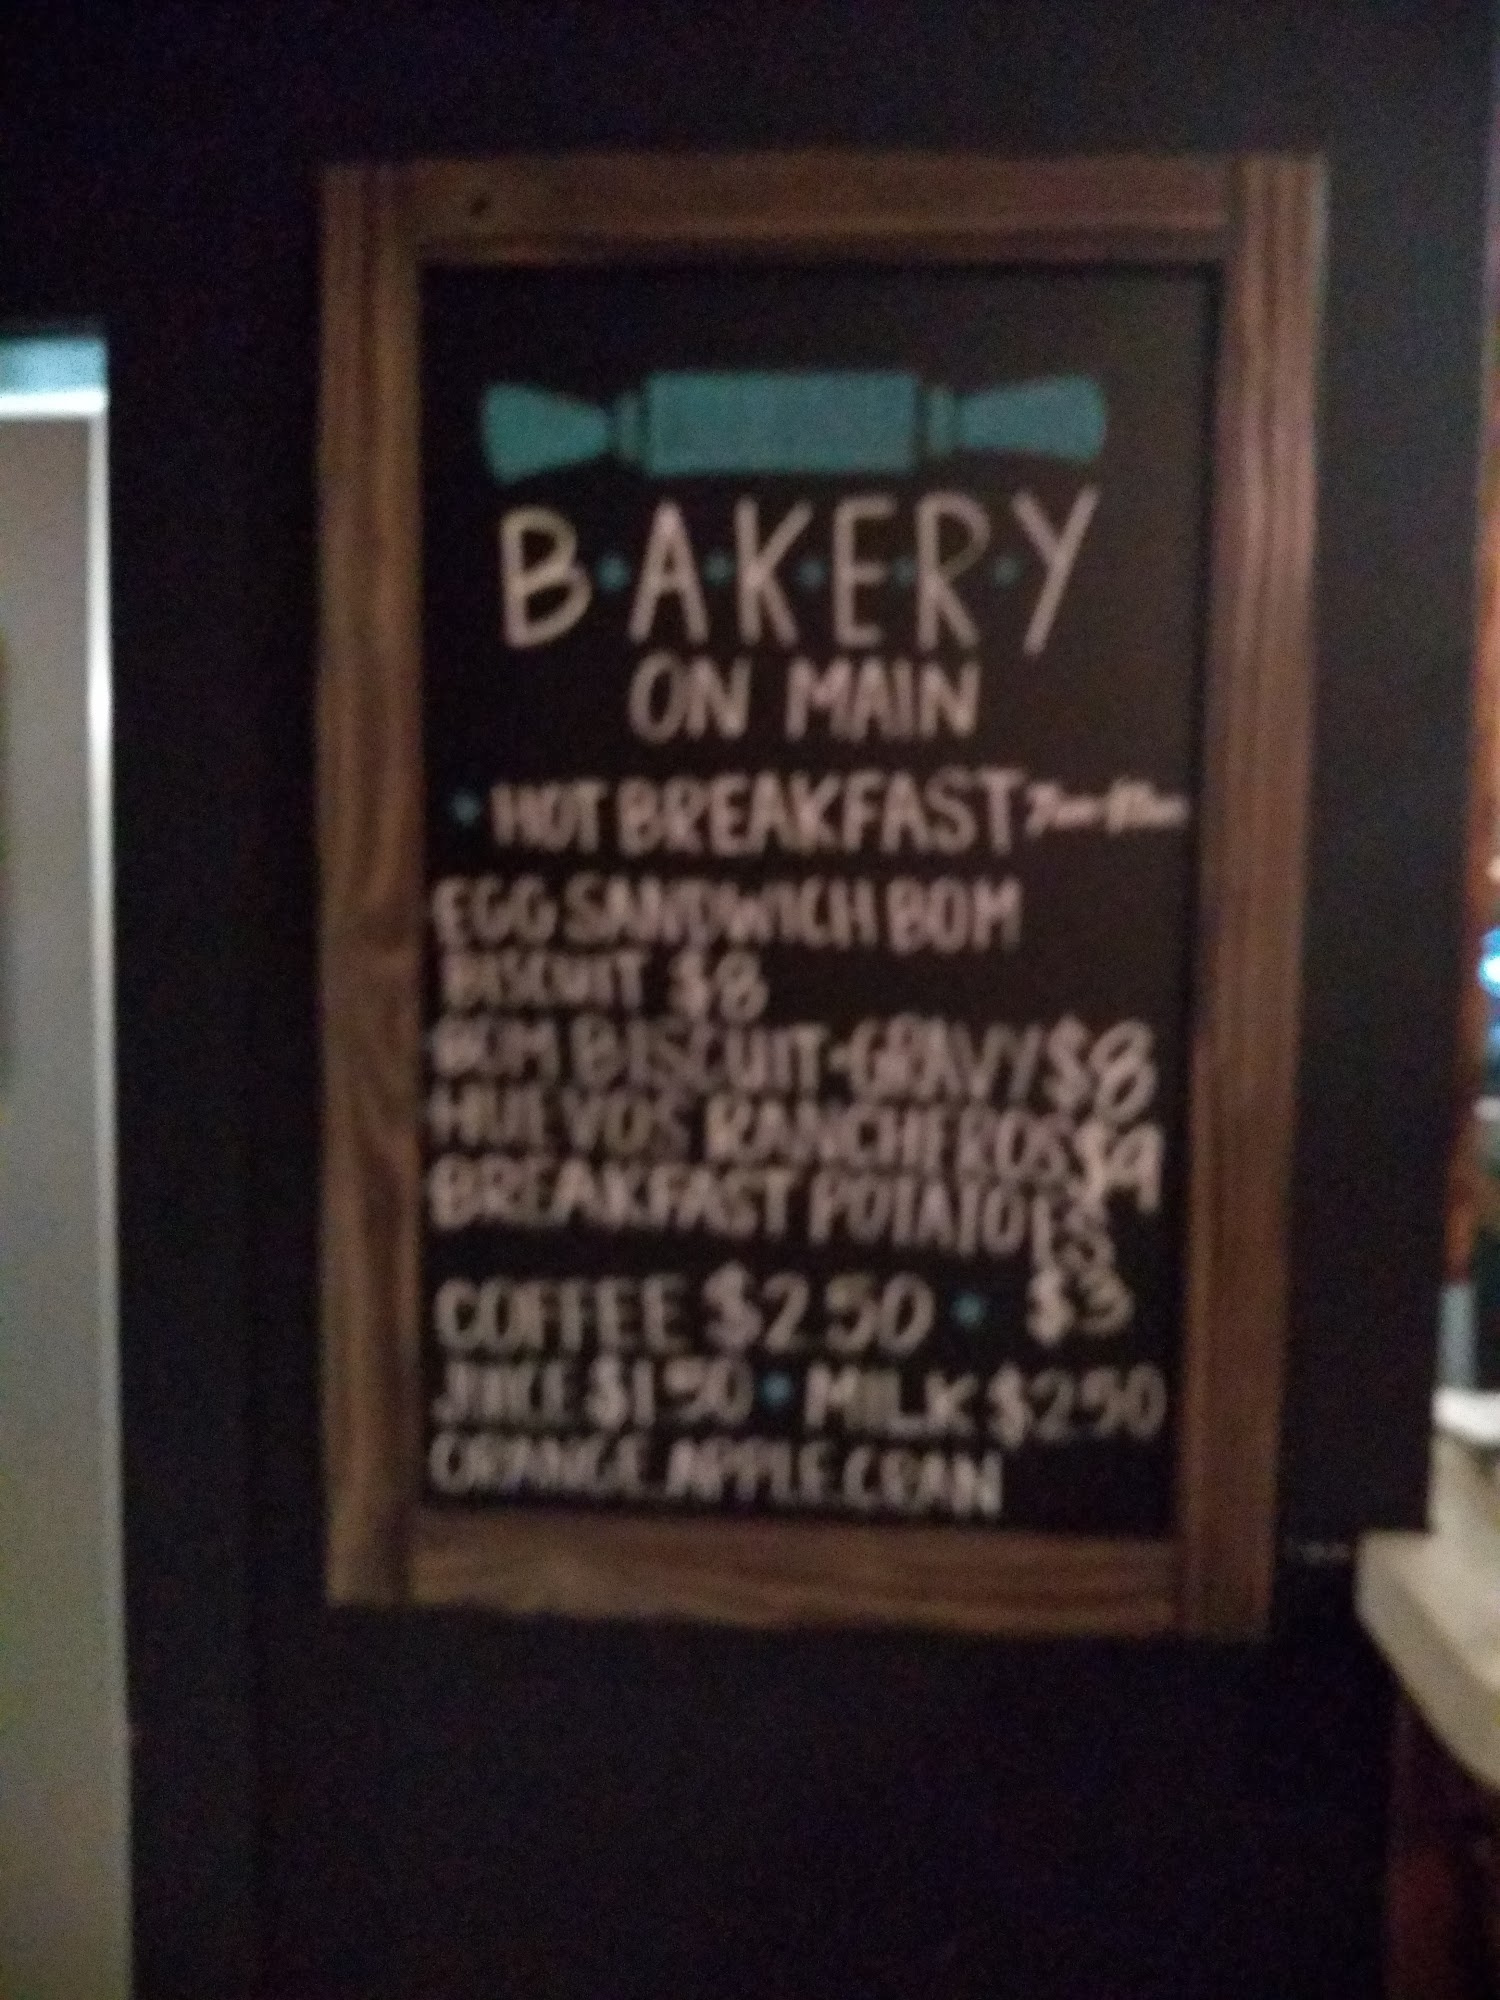 B·A·K·E·R·Y
ON MAIN
• HOT BREAKFAST
EGG SANDWICH BOM
BISCUIT $8
BOM BISCUIT-GRAVY $8
HUEVOS RANCHEROS $9
BREAKFAST POTATOES
COFFEE $2 50 • $3
JUICE $1 50 • MILK $2 50
ORANGE, APPLE, CRAN